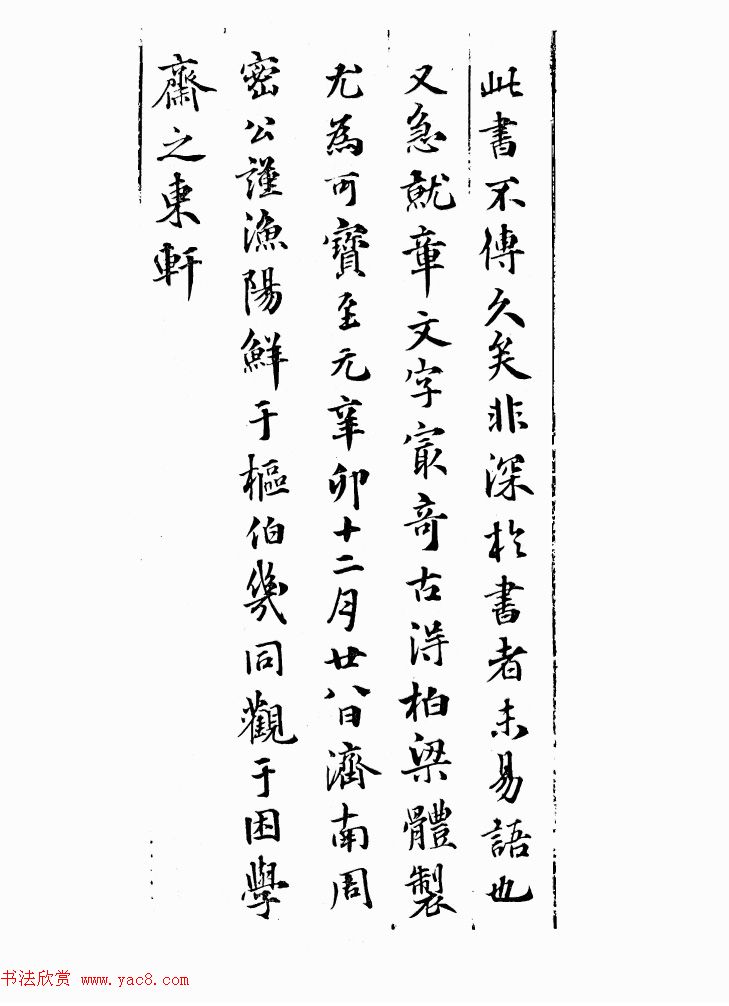 此書不傳久矣非深於書者未易語也
又急就章文字㝡奇古得柏梁體製
尤為可寶至元辛卯十二月廿八日濟南周
密公謹漁陽鮮于樞伯幾同觀于困學
齋之東軒
书法欣赏 www.yac8.com